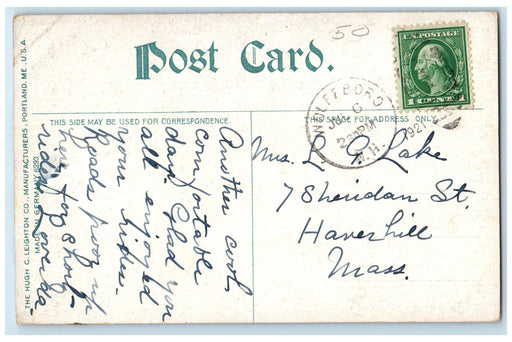 50
Post Card.
U.S. POSTAGE
1 CENT 1
WOLFEBORO
6
2 PM
1921
N.H.
THIS SIDE MAY BE USED FOR CORRESPONDENCE.
THIS SPACE FOR ADDRESS ONLY
THE HUGH C. LEIGHTON CO., MANUFACTURERS, PORTLAND, ME., U.S.A.
MADE IN GERMANY
Another cool
comfortable
day. Glad you
all enjoyed
your rides.
Roads poor up
here for short
rides
Mrs. L. O. Lake
7 Sheridan St.
Haverhill
Mass.